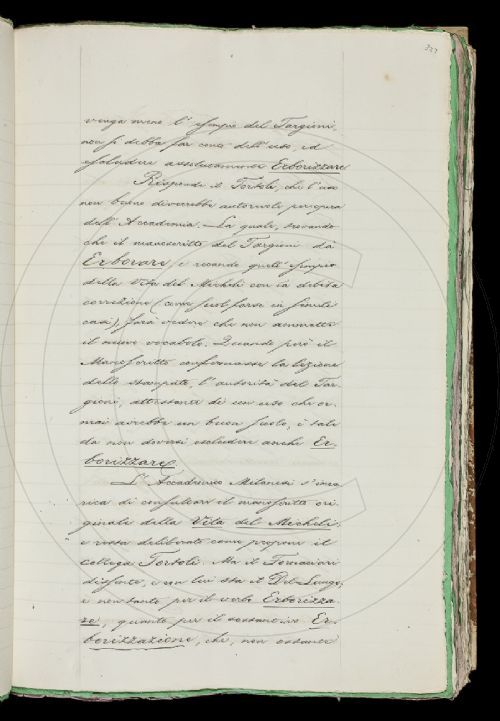 venga meno l'esempio del Targioni,
non si debba far conto dell'uso, ed
escludere assolutamente Erborizzare.
Risponde il Tortoli, che l'uso
non buono diverrebbe autorevole per opera
dell'Accademia. La quale, trovando
che il manoscritto del Targioni dà
Erborare, e recando quell'esempio
della Vita del Micheli con la debita
correzione (come suol farsi in simili
casi), farà vedere che non ammette
il nuovo vocabolo. Quando però il
Manoscritto confermasse la lezione
dello stampato, l'autorità del Tar-
gioni, attestante di un uso che or-
mai avrebbe un buon secolo, è tale
da non doversi escludere anche Er-
borizzare.
L'Accademico Milanesi s'inca
rica di consultare il manoscritto ori-
ginale della Vita del Micheli;
e resta deliberato come propone il
Collega Tortoli. Ma il Fornaciari
dissente, e con lui sta il Del-Lungo,
e non tanto per il verbo Erborizza-
re, quanto per il sostantivo Er-
borizzazione, che, non ostante